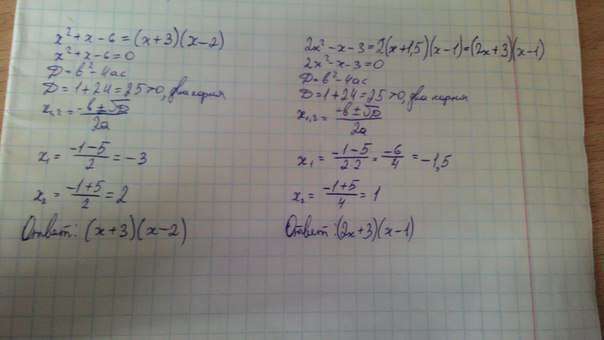 x² + x - 6 = (x+3)(x-2)
x² + x - 6 = 0
D = b² - 4ac
D = 1 + 24 = 25 > 0, два корня
x₁,₂ = (-b ± √D) / 2a
x₁ = (-1-5) / 2 = -3
x₂ = (-1+5) / 2 = 2
Ответ: (x+3)(x-2)
2x² - x - 3 = 2(x+1,5)(x-1) = (2x+3)(x-1)
2x² - x - 3 = 0
D = b² - 4ac
D = 1 + 24 = 25 > 0, два корня
x₁,₂ = (-b ± √D) / 2a
x₁ = (-1-5) / 2·2 = -6 / 4 = -1,5
x₂ = (-1+5) / 4 = 1
Ответ: (2x+3)(x-1)